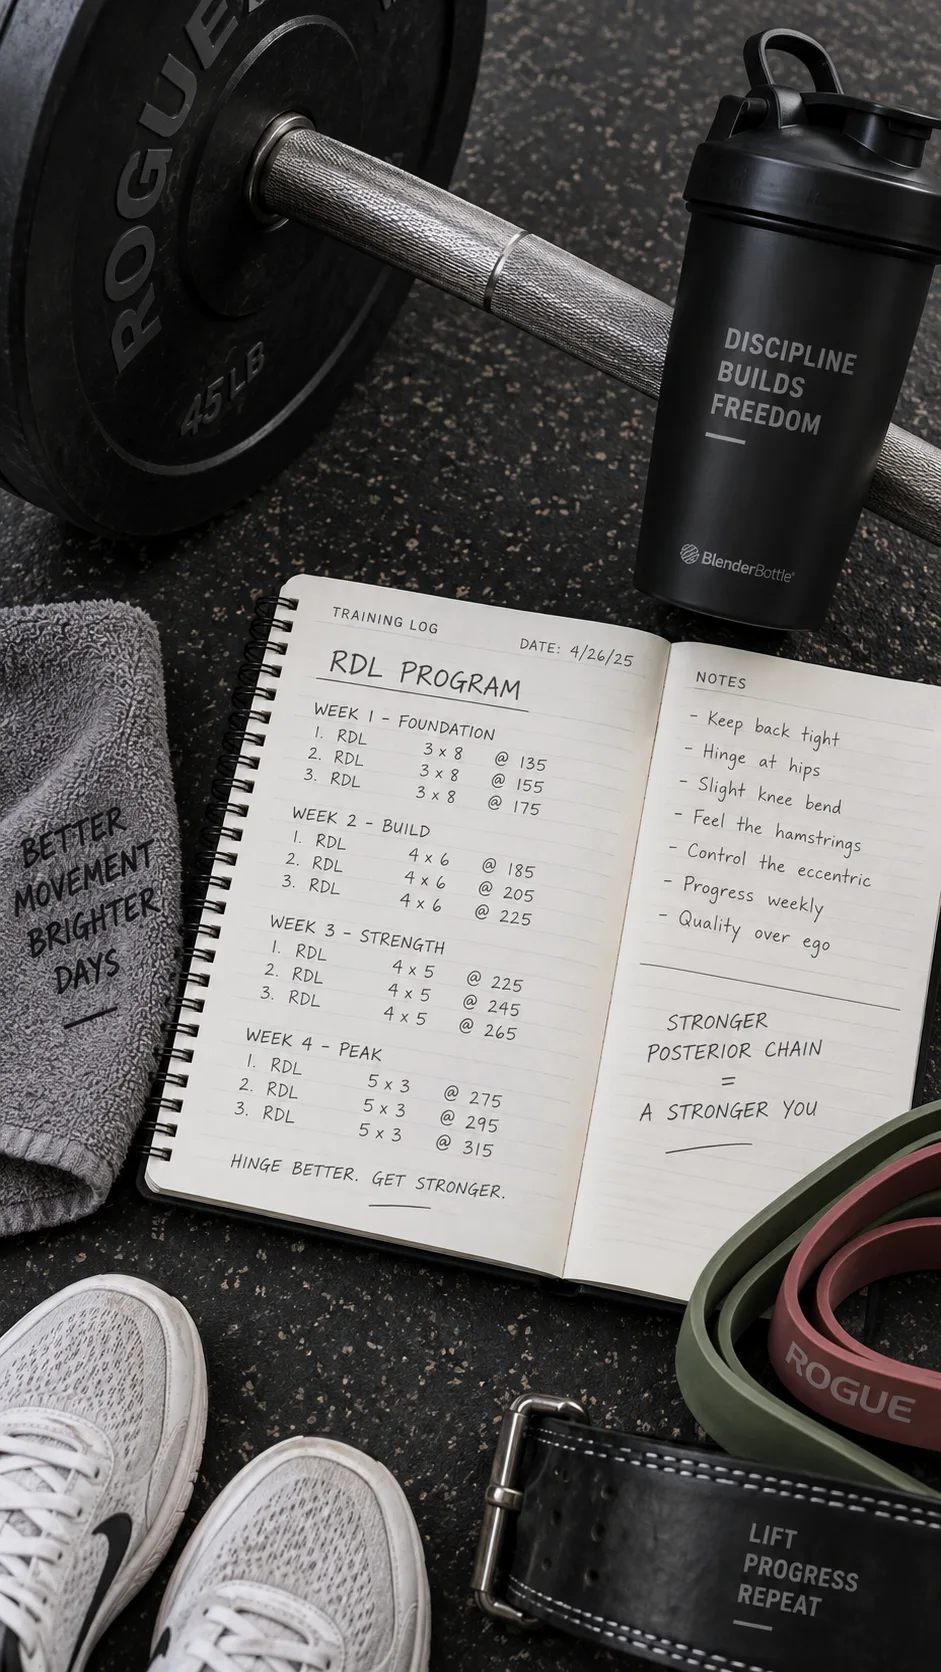 ROGUE
45 LB
DISCIPLINE
BUILDS
FREEDOM
BlenderBottle®
TRAINING LOG
DATE: 4/26/25
RDL PROGRAM
WEEK 1 - FOUNDATION
1. RDL 3 x 8 @ 135
2. RDL 3 x 8 @ 155
3. RDL 3 x 8 @ 175
WEEK 2 - BUILD
1. RDL 4 x 6 @ 185
2. RDL 4 x 6 @ 205
3. RDL 4 x 6 @ 225
WEEK 3 - STRENGTH
1. RDL 4 x 5 @ 225
2. RDL 4 x 5 @ 245
3. RDL 4 x 5 @ 265
WEEK 4 - PEAK
1. RDL 5 x 3 @ 275
2. RDL 5 x 3 @ 295
3. RDL 5 x 3 @ 315
HINGE BETTER. GET STRONGER.
NOTES
- Keep back tight
- Hinge at hips
- Slight knee bend
- Feel the hamstrings
- Control the eccentric
- Progress weekly
- Quality over ego
STRONGER
POSTERIOR CHAIN
=
A STRONGER YOU
BETTER
MOVEMENT
BRIGHTER
DAYS
ROGUE
LIFT
PROGRESS
REPEAT